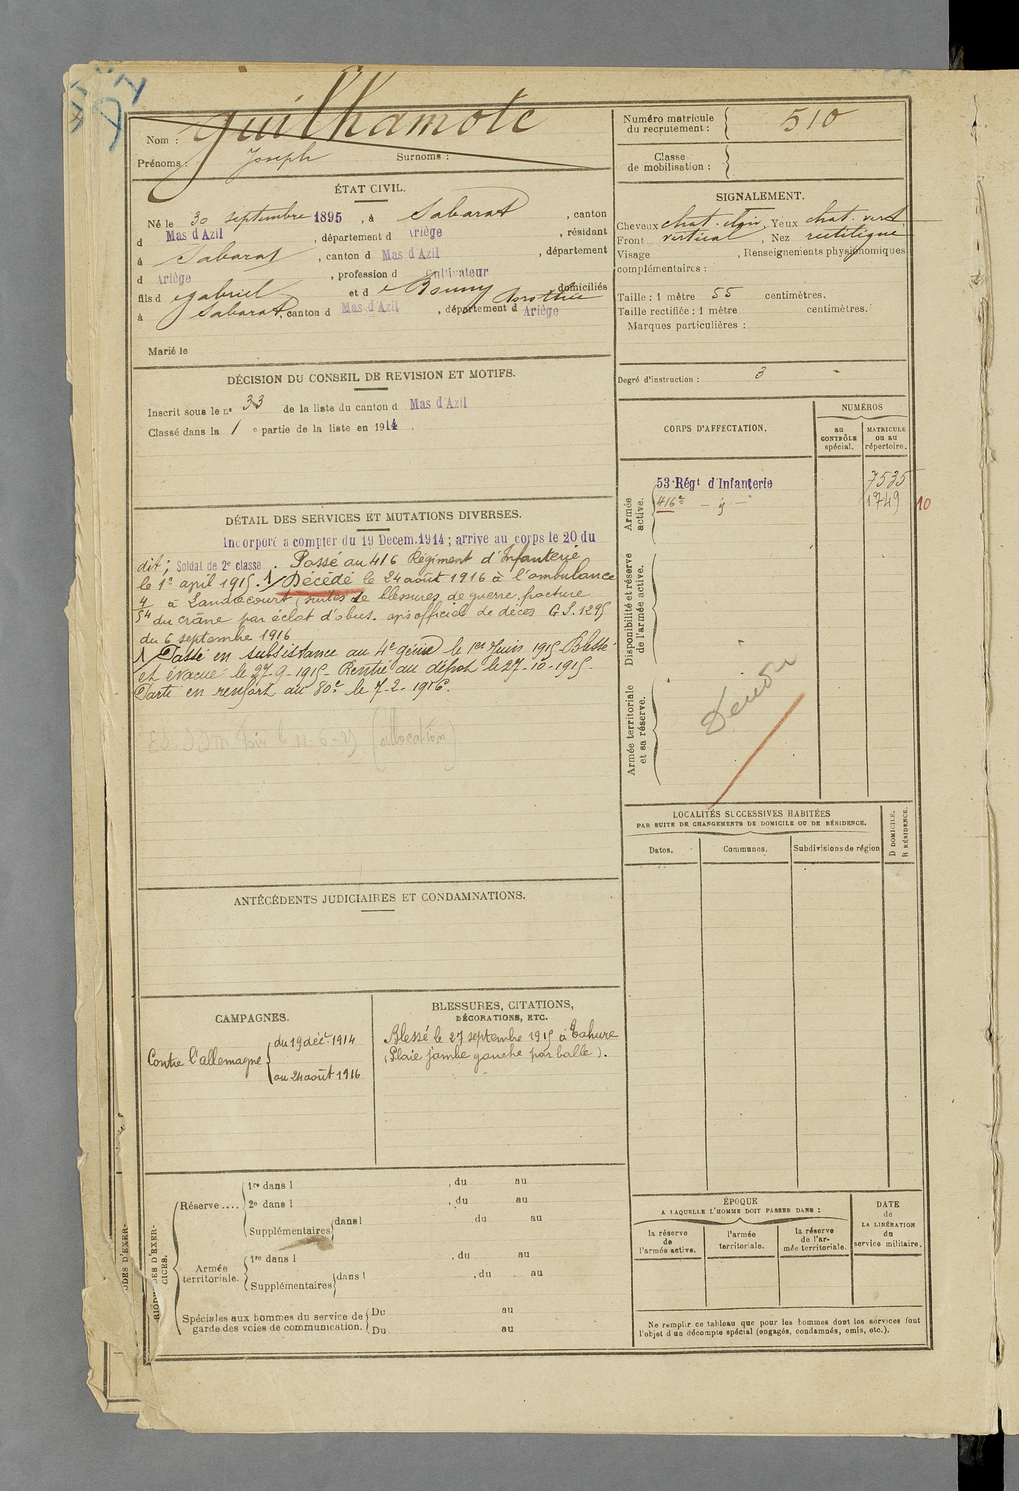 Nom : Guilhamote
Prénoms : Joseph Surnoms :
Numéro matricule du recrutement : 510
Classe de mobilisation :
ÉTAT CIVIL.
Né le 30 septembre 1895, à Sabarat, canton
d Mas d'Azil, département d Ariège, résidant
à Sabarat, canton d Mas d'Azil, département
d Ariège, profession d Cultivateur
fils d e Gabriel et d e Bounny Dorothée domiciliés
à Sabarat, canton d Mas d'Azil, département d Ariège
Marié le
SIGNALEMENT.
Cheveux chat. clair, Yeux chat. vert
Front vertical, Nez rectiligne
Visage , Renseignements physionomiques
complémentaires :
Taille : 1 mètre 55 centimètres.
Taille rectifiée : 1 mètre centimètres.
Marques particulières :
Degré d'instruction : 3
DÉCISION DU CONSEIL DE REVISION ET MOTIFS.
Inscrit sous le nº 33 de la liste du canton d Mas d'Azil
Classé dans la 1 e partie de la liste en 1914.
CORPS D'AFFECTATION.
NUMÉROS
au CONTRÔLE spécial.
MATRICULE ou au répertoire.
Armée active.
53e Régt d'Infanterie 7535
416e — " — 1749 10
Disponibilité et réserve de l'armée active.
Armée territoriale et sa réserve.
DÉTAIL DES SERVICES ET MUTATIONS DIVERSES.
Incorporé à compter du 19 Decem. 1914 ; arrivé au corps le 20 du
dit ; Soldat de 2e classe. Passé au 416 Régiment d'Infanterie
le 1er april 1915. 1/ Décédé le 24 août 1916 à l'ambulance
4/54 à Landrecourt (suites de blessures de guerre fracture
du crâne par éclat d'obus. avis officiel de décès G.S. 1295
du 6 septembre 1916
1/ Passé en subsistance au 4e génie le 1er Juin 1915 Blessé
et évacué le 27-9-1915 - Rentré au dépôt le 27-10-1915
Parti en renfort au 80e le 7-2-1916.
(allocation)
LOCALITÉS SUCCESSIVES HABITÉES
PAR SUITE DE CHANGEMENTS DE DOMICILE OU DE RÉSIDENCE.
Dates. Communes. Subdivisions de région
D DOMICILE.
R RÉSIDENCE.
ANTÉCÉDENTS JUDICIAIRES ET CONDAMNATIONS.
CAMPAGNES.
Contre l'allemagne
du 19 déc. 1914
au 24 août 1916
BLESSURES, CITATIONS,
DÉCORATIONS, ETC.
Blessé le 27 septembre 1915 à Tahure
(Plaie jambe gauche par balle).
ODES D'EXER-
RIODES D'EXER-
CICES.
Réserve....
1re dans l , du au
2e dans l , du au
Supplémentaires dans l du au
Armée territoriale.
1re dans l , du au
Supplémentaires dans l , du au
Spéciales aux hommes du service de garde des voies de communication.
Du au
Du au
ÉPOQUE
A LAQUELLE L'HOMME DOIT PASSER DANS :
la réserve de l'armée active.
l'armée territoriale.
la réserve de l'armée territoriale.
DATE de LA LIBÉRATION du service militaire.
Ne remplir ce tableau que pour les hommes dont les services font
l'objet d'un décompte spécial (engagés, condamnés, omis, etc.).